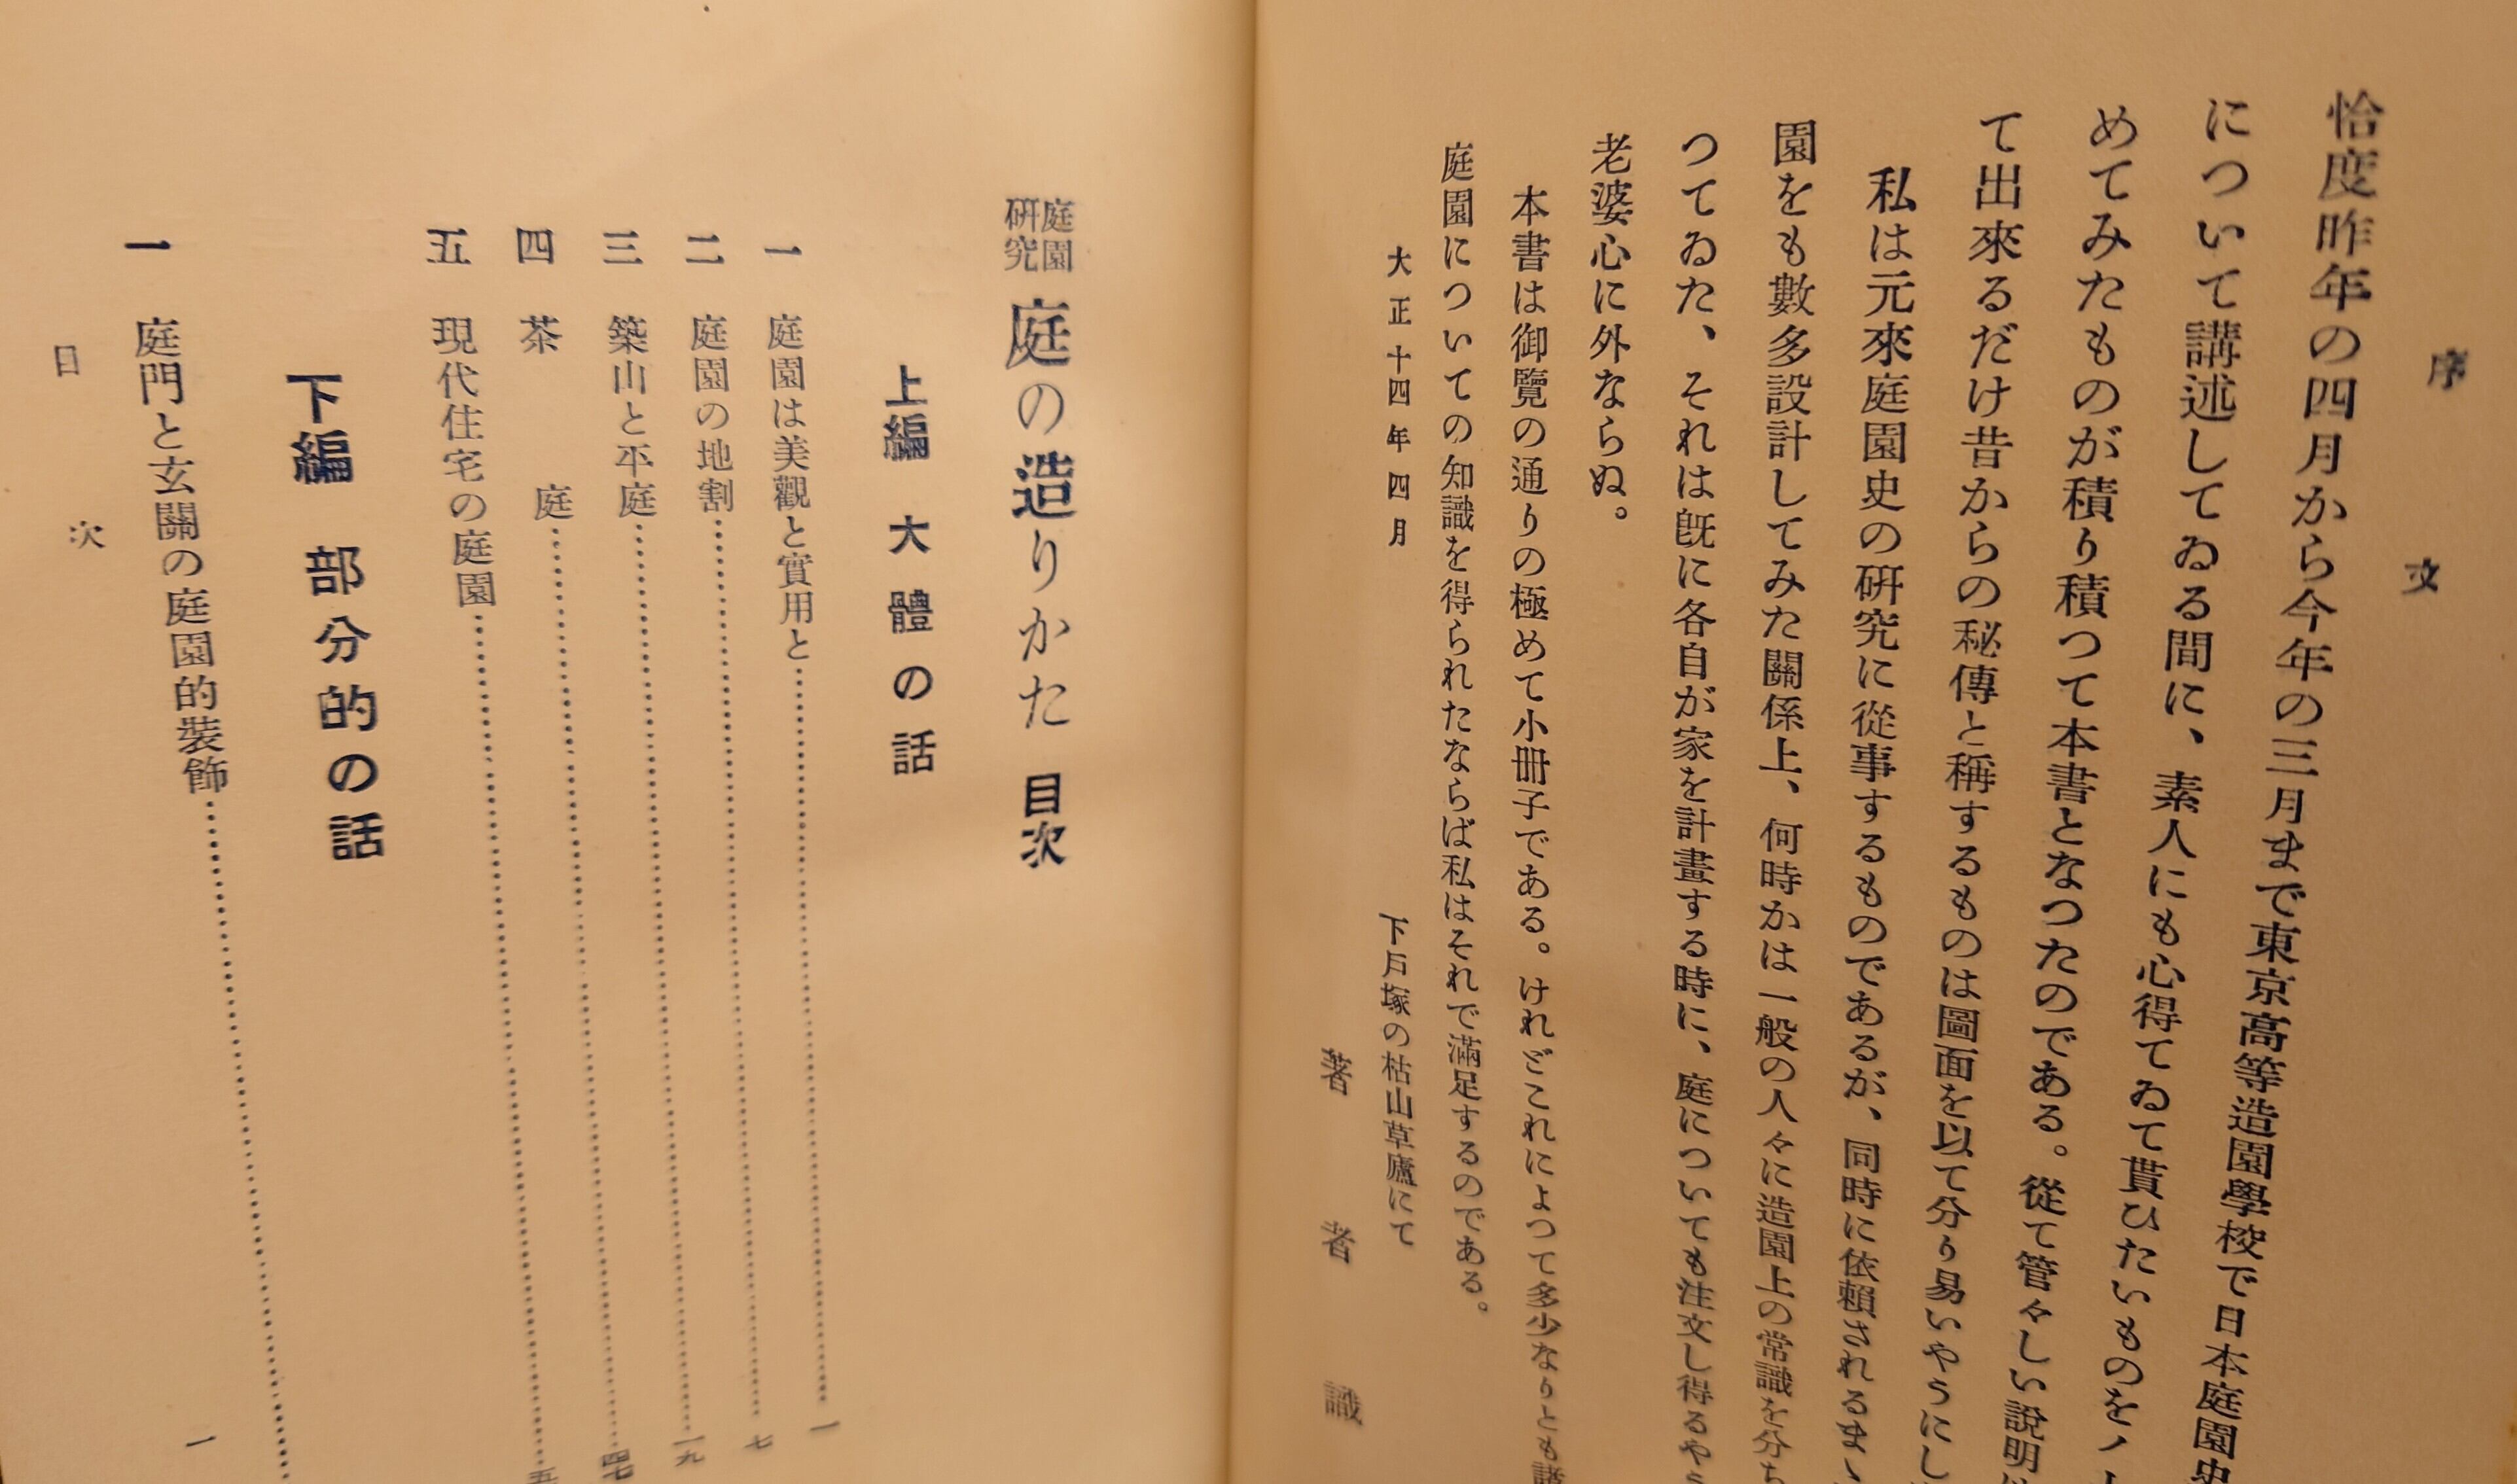 序文
恰度昨年の四月から今年の三月まで東京高等造園學校で日本庭園史
について講述してゐる間に、素人にも心得てゐて貰ひたいものをノ
めてみたものが積り積つて本書となつたのである。從て管々しい說明
て出來るだけ昔からの秘傳と稱するものは圖面を以て分り易いやうにし
私は元來庭園史の硏究に從事するものであるが、同時に依賴されるまゝ
園をも數多設計してみた關係上、何時かは一般の人々に造園上の常識を分ち
つてゐた、それは旣に各自が家を計畫する時に、庭についても注文し得るやう
老婆心に外ならぬ。
本書は御覽の通りの極めて小冊子である。けれどこれによつて多少なりとも諸
庭園についての知識を得られたならば私はそれで滿足するのである。
大正十四年四月
下戶塚の枯山草廬にて
著者識
庭園硏究 庭の造りかた 目次
上編 大體の話
一 庭園は美觀と實用と……一
二 庭園の地割……七
三 築山と平庭……一九
四 茶庭……四七
五 現代住宅の庭園……五
下編 部分的の話
一 庭門と玄關の庭園的裝飾……
目次 一